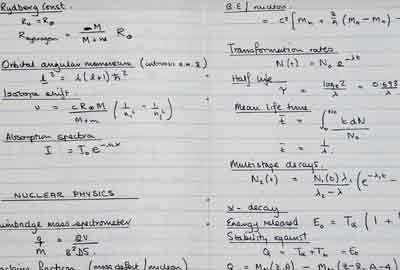 Rydberg Const.
R₀ = R∞
R hydrogen = M / (M + m) R∞
Orbital angular momentum (intrinsic
l² = l(l+1)ħ²
Isotope shift.
ν = cR∞M / (M+m) (1/n₁² − 1/n₂²)
Absorption spectra
I = I₀e
NUCLEAR PHYSICS
mass spectrometer
q/M = 2V / B²
fraction (mass defect / nucleon)
B.E / nucleon
= c² [Mₙ + (Mₙ − Mₙ) −
Transformation rates
N(t) = N₀ e^−λt
Half life
τ = logₑ2 / λ = 0.693
Mean life time
t̄ = ∫₀^N₀ t dN / N₀
t̄ = 1/λ
Multistage decays.
N₂(t) = N₁(0) λ₁ / (λ₂ − λ) (e^−λ₁t −
α - decay
Energy released E₀ = Tα (1 +
Stability against
Q = Tα + T = E₀
Q = (Z,A) − (Z−2, A−4)